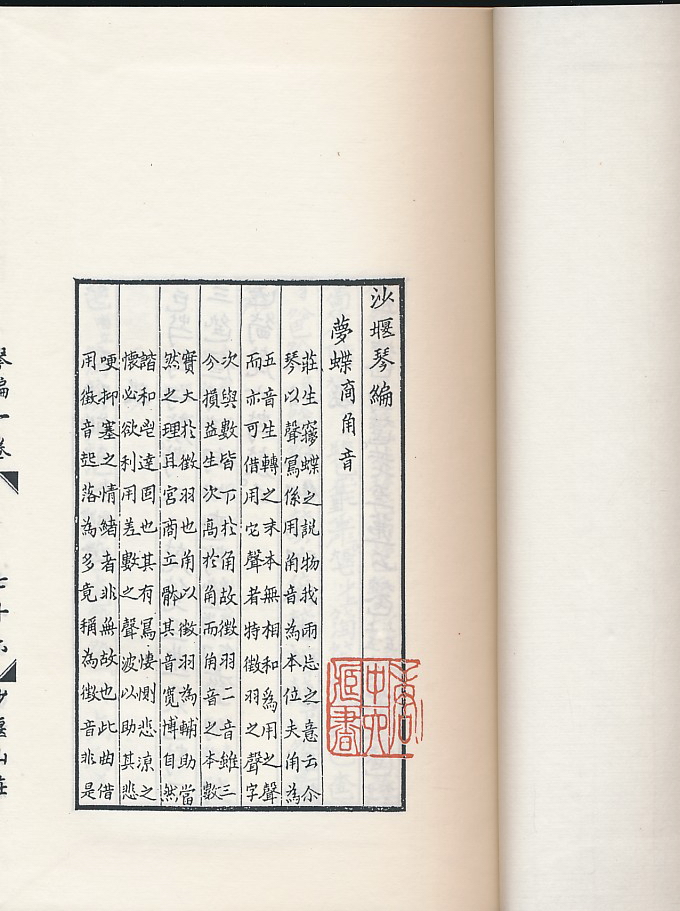 沙堰琴編
夢蝶商角音
莊生寱蝶之説物我兩忘之意云尒
琴以聲寫係用角音為本位夫角為
五音生轉之末本無相和為用之聲
而亦可借用它聲者特徵羽之聲字
次與數皆下於角故徵羽二音雖三
今損益生次高於角而角音之本數
實大於徵羽也角以徵羽為輔助當
然之理且宮商立骵其音寬博自然
諧和達固也其有寫悽惻悲涼之
懷必欲利用差數之聲波以助其悲
哽抑塞之情緒者非無故也此曲借
用徵音起落為多竟稱為徵音非是
琴編一卷
沙堰山莊